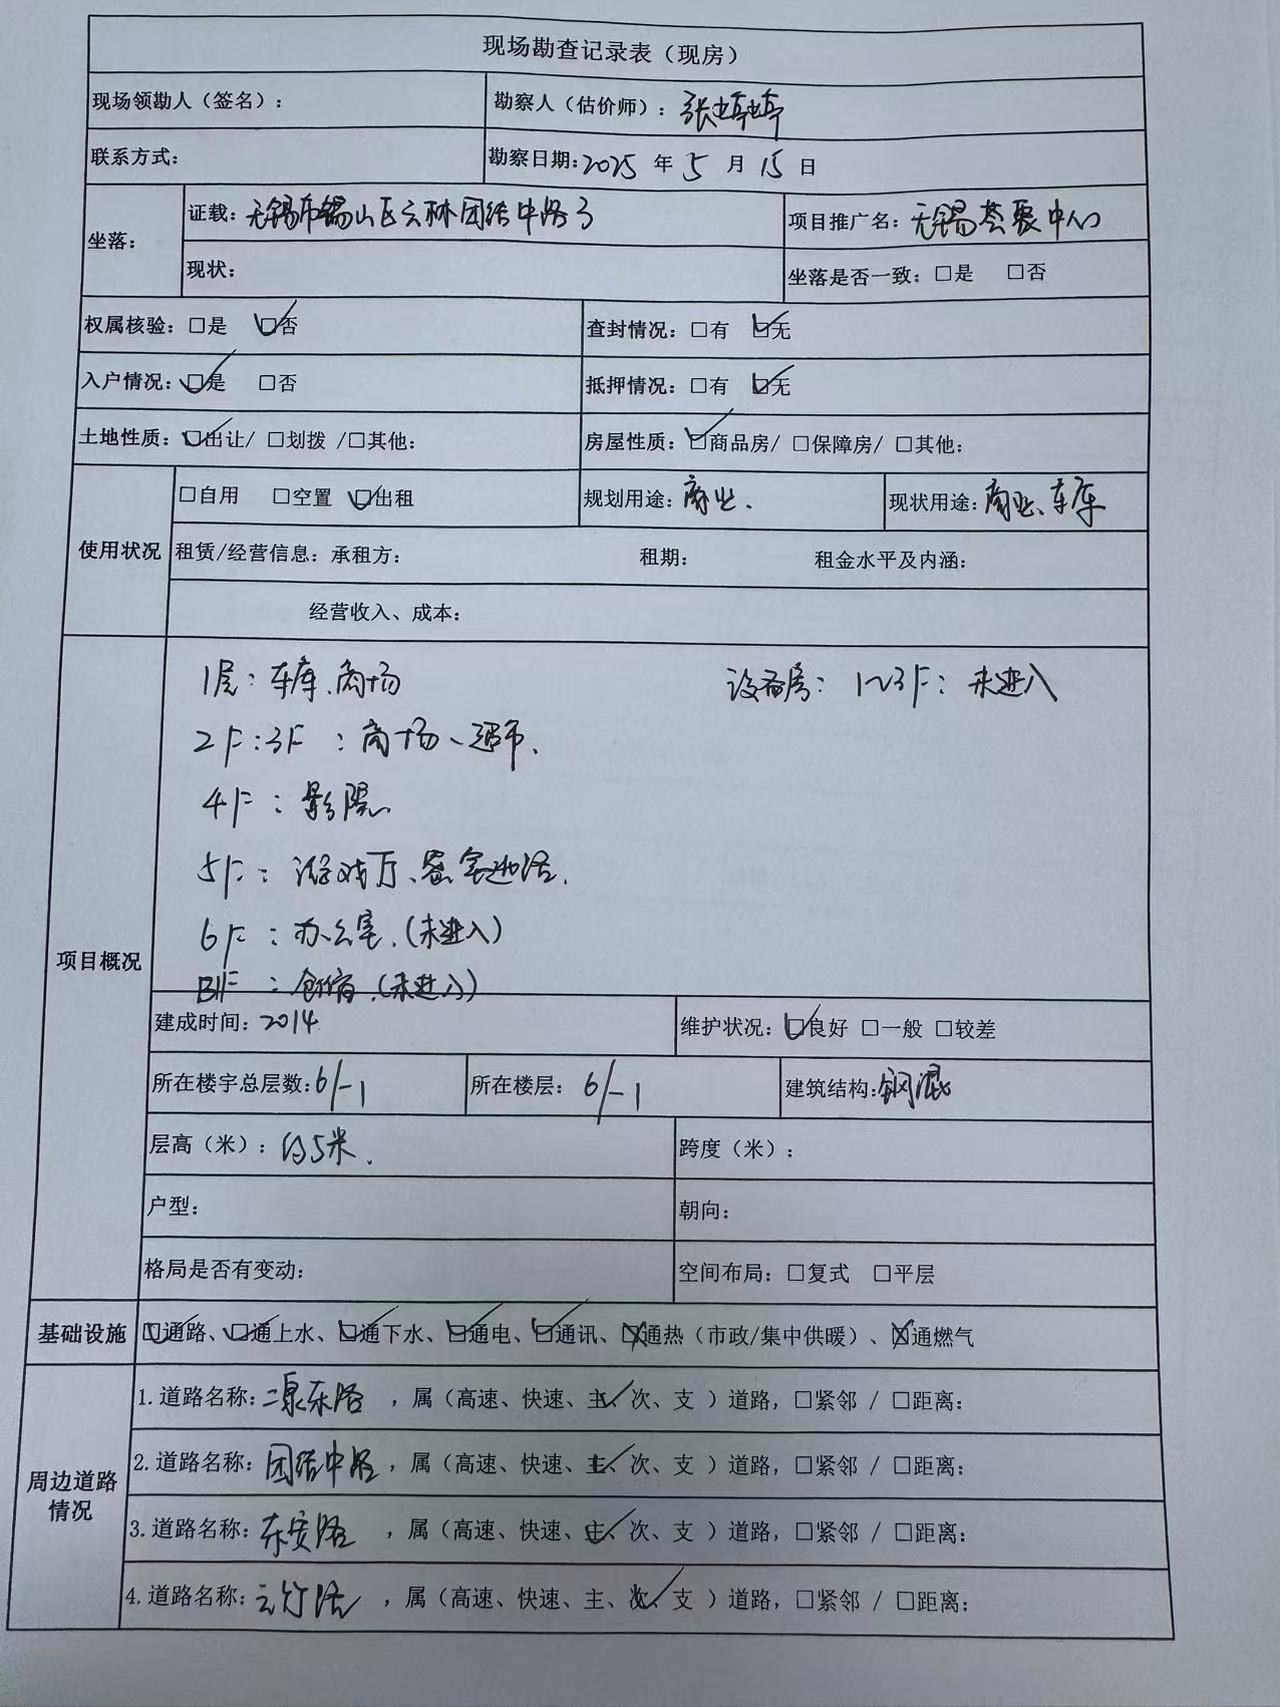 现场勘查记录表（现房）
现场领勘人（签名）：
勘察人（估价师）：张婷婷
联系方式：
勘察日期：2025 年 5 月 15 日
坐落：
证载：无锡市锡山区云林团结中路3
项目推广名：无锡荟聚中心
现状：
坐落是否一致：□是 □否
权属核验：□是 ☑否
查封情况：□有 ☑无
入户情况：☑是 □否
抵押情况：□有 ☑无
土地性质：☑出让/ □划拨 /□其他：
房屋性质：☑商品房/ □保障房/ □其他：
使用状况
□自用 □空置 ☑出租
规划用途：商业.
现状用途：商业、车库
租赁/经营信息：承租方： 租期： 租金水平及内涵：
经营收入、成本：
项目概况
1层：车库、商场
设备房：1~3F：未进入
2F:3F：商场、超市.
4F：影院.
5F：游戏厅、
6F：办公室.(未进入)
B1F：仓储.(未进入)
建成时间：2014
维护状况：☑良好 □一般 □较差
所在楼宇总层数：6/-1
所在楼层：6/-1
建筑结构：钢混
层高（米）：约5米.
跨度（米）：
户型：
朝向：
格局是否有变动：
空间布局：□复式 □平层
基础设施
☑通路、☑通上水、☑通下水、☑通电、☑通讯、☒通热（市政/集中供暖）、☒通燃气
周边道路情况
1.道路名称：二泉东路，属（高速、快速、主✓、次、支 ）道路，□紧邻 / □距离：
2.道路名称：团结中路，属（高速、快速、主✓、次、支 ）道路，□紧邻 / □距离：
3.道路名称：东安路，属（高速、快速、主✓、次、支 ）道路，□紧邻 / □距离：
4.道路名称：云竹路，属（高速、快速、主、次✓、支 ）道路，□紧邻 / □距离：